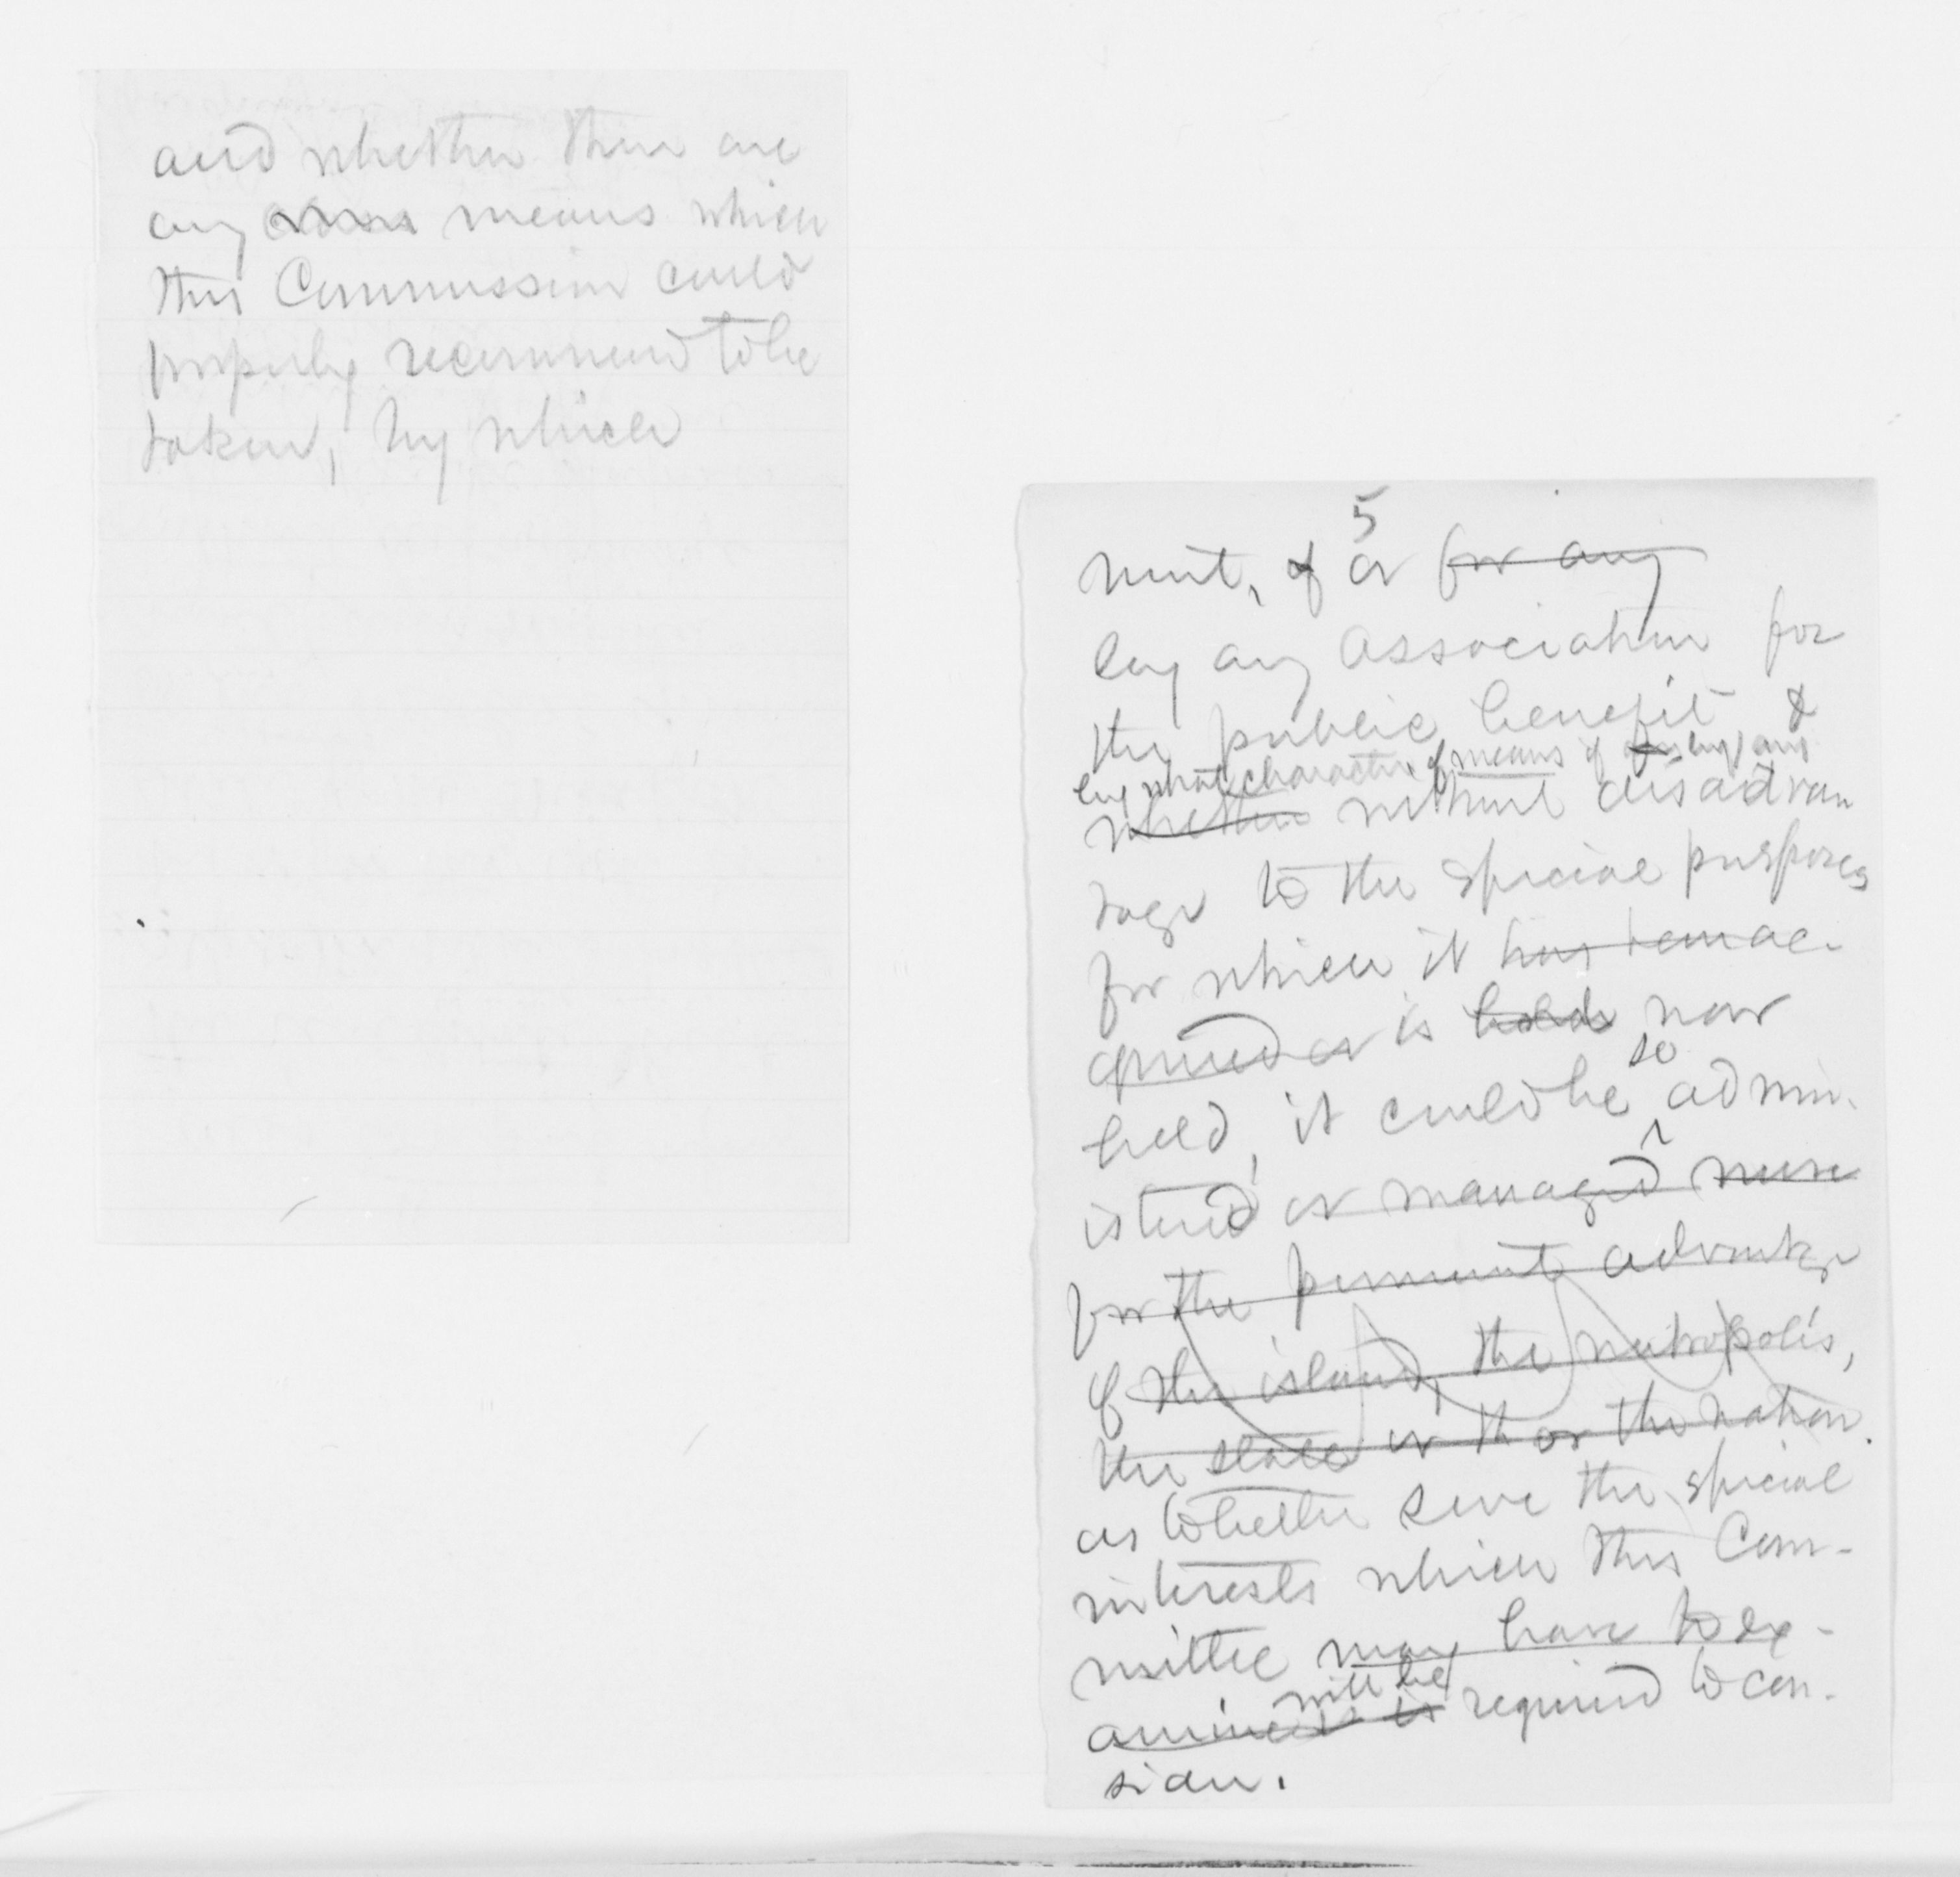 and whether there are
any means which
this Commission could
properly recommend to be
taken, by which
5
ment, of or for any
by any association for
the public benefit &
by what character of means if by any
whether without disadvan
tage to the special purposes
for which it has been ac-
quired or is holds now
so
held, it could be admin-
istered or managed more
for the permanent advantage
of the island, the metropolis,
the state or th or the nation.
as to better serve the special
interests which this Com-
mittee may have to ex-
will be
amine is required to con-
sider.